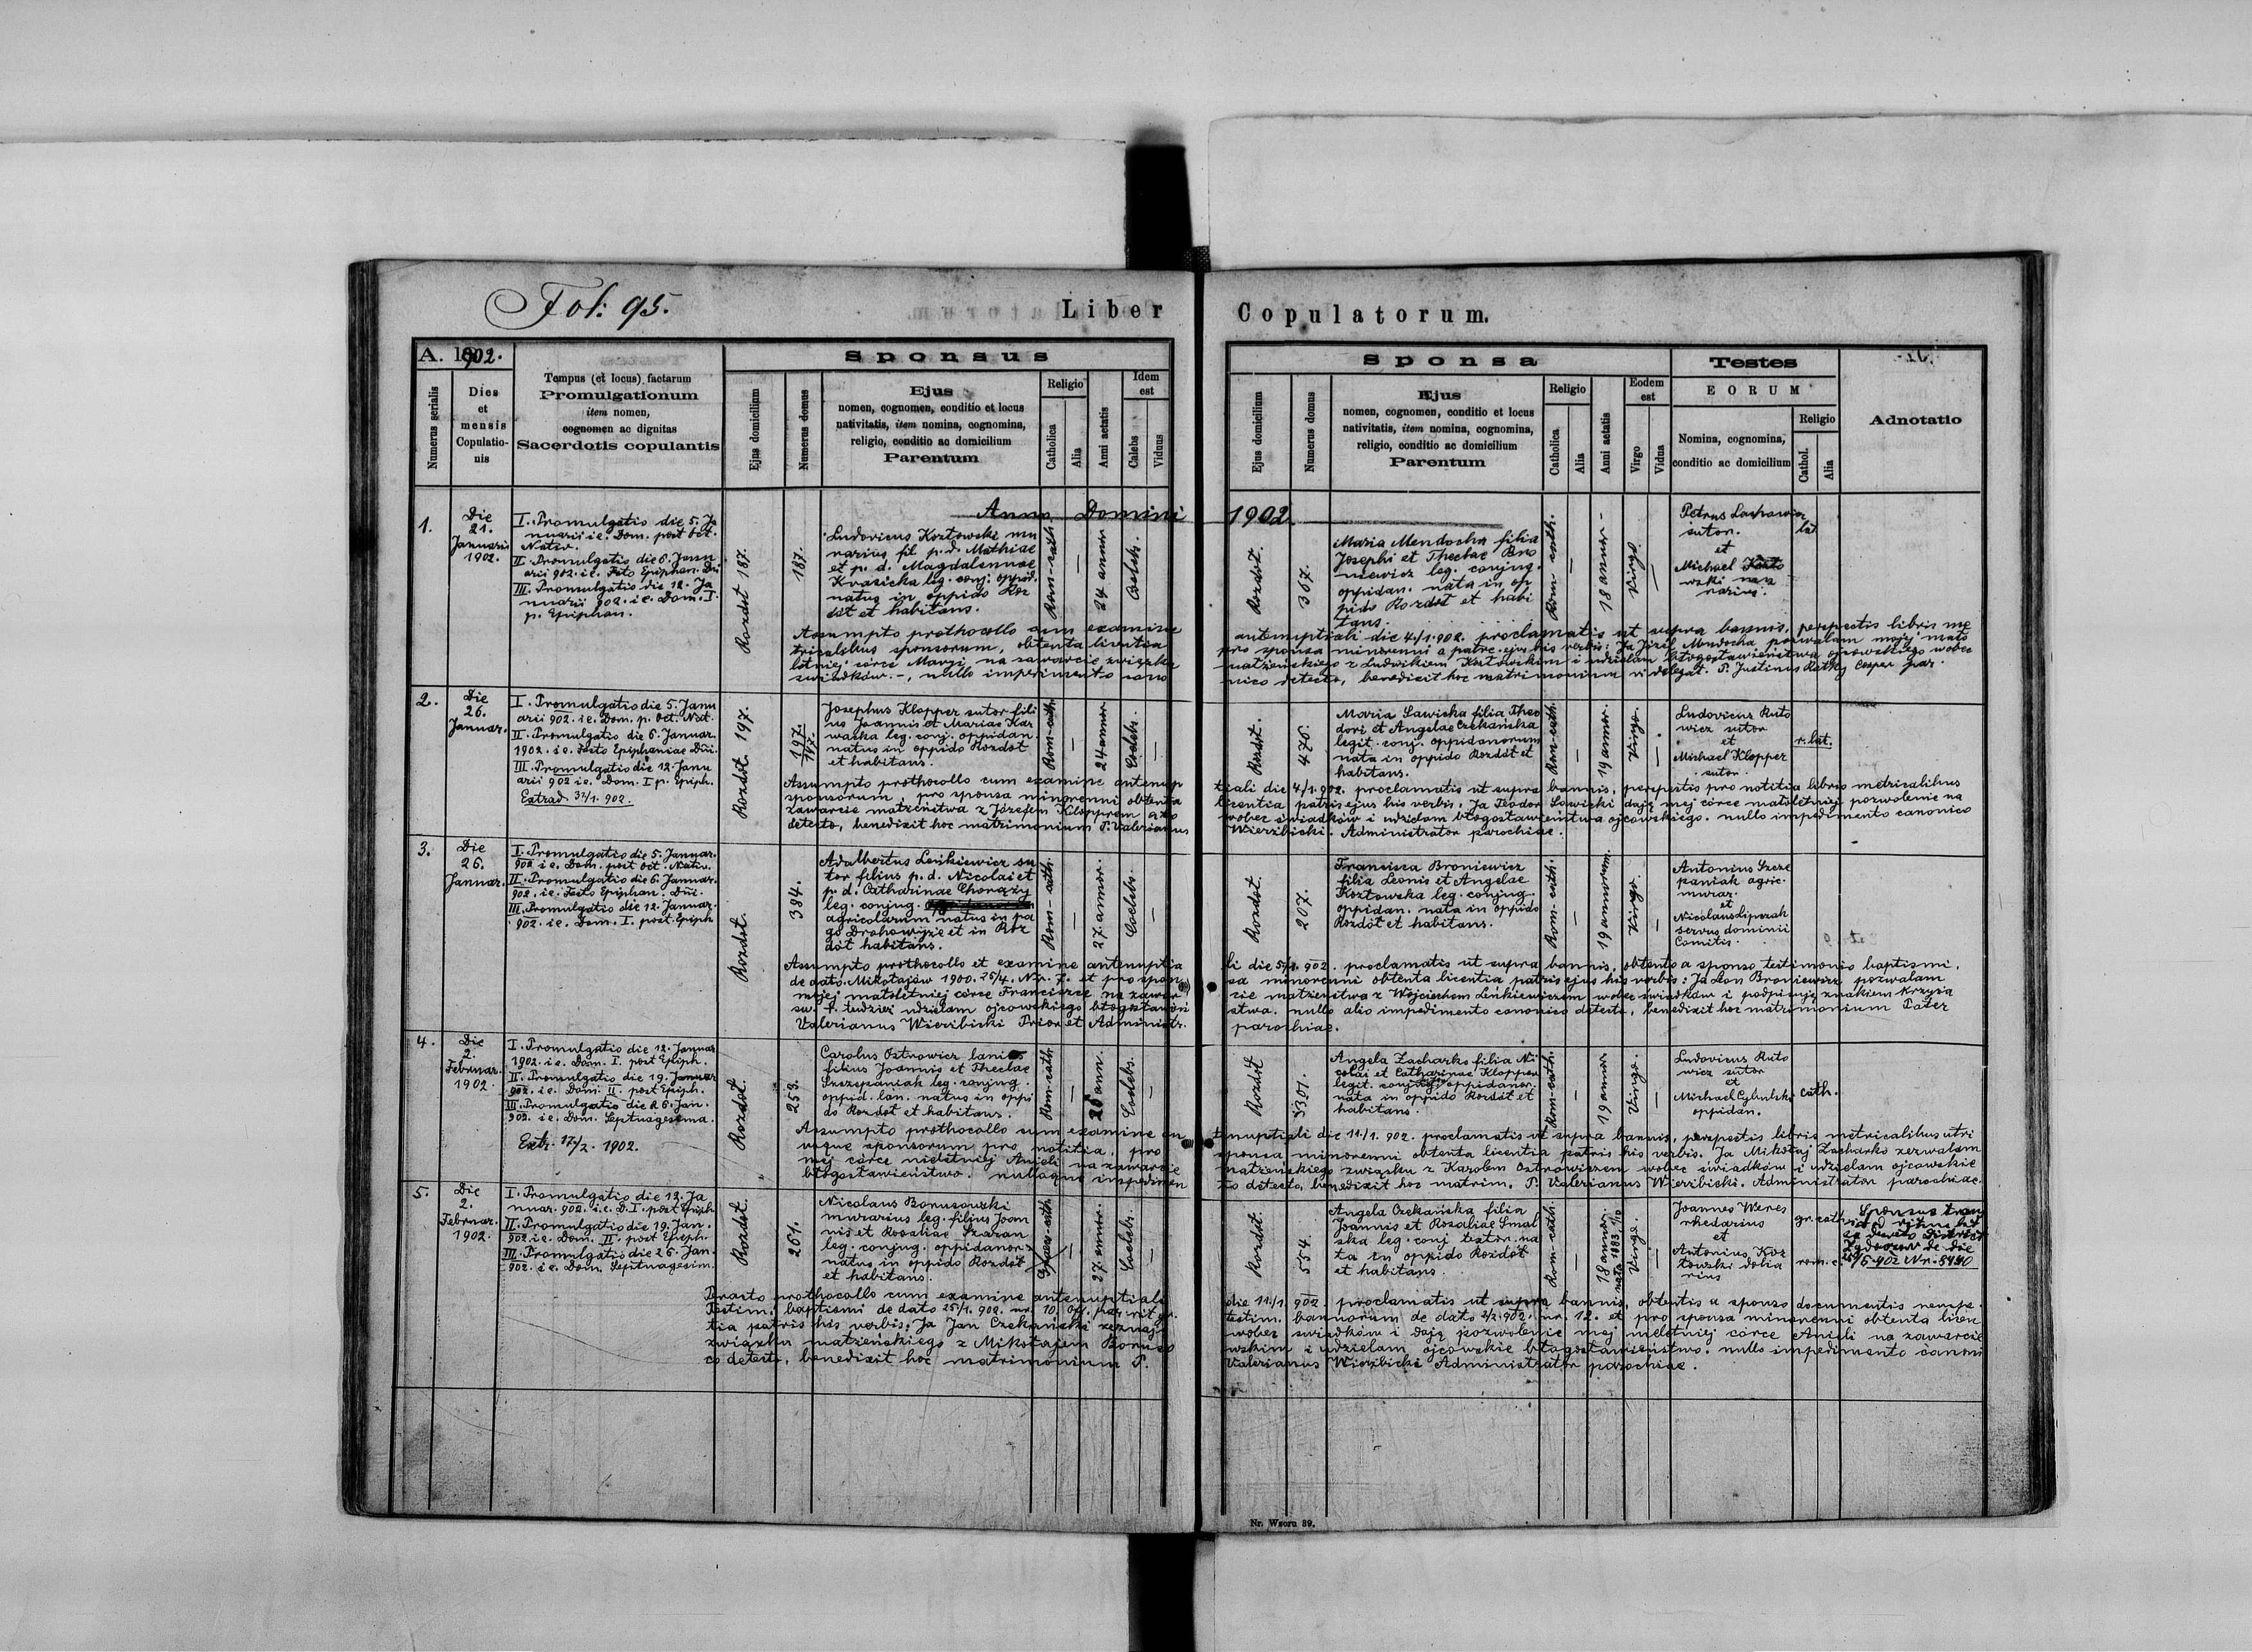 Fol: 95.
Liber Copulatorum.
A. 1902.
Numerus serialis
Dies
et
mensis
Copulatio-
nis
Tempus (et locus) factarum
Promulgationum
item nomen,
cognomen ac dignitas
Sacerdotis copulantis
Sponsus
Ejus domicilium
Numerus domus
Ejus
nomen, cognomen, conditio et locus
nativitatis, item nomina, cognomina,
religio, conditio ac domicilium
Parentum
Religio
Catholica
Alia
Anni aetatis
Idem
est
Caelebs
Viduus
Sponsa
Ejus domicilium
Numerus domus
Ejus
nomen, cognomen, conditio et locus
nativitatis, item nomina, cognomina,
religio, conditio ac domicilium
Parentum
Religio
Catholica
Alia
Anni aetatis
Eodem
est
Virgo
Vidua
Testes
EORUM
Nomina, cognomina,
conditio ac domicilium
Religio
Cathol.
Alia
Adnotatio
Anno Domini 1902.
1.
Die
21.
Januarii
1902.
I. Promulgatio die 5. Ja
nuarii i e. Dom. post Oct.
Nativ.
II. Promulgatio die 6. Janu
arii 902. i e. Fsto Epiphan. Dni
III. Promulgatio die 12. Ja
nuarii 902. i e. Dom. I.
p. Epiphan.
Rozdół 187.
187.
Ludovicus Kozłowski mu
rarius fil. p. d. Mathiae
et p. d. Magdalennae
Krasicka leg. conj. oppid.
natus in oppido Roz
dół et habitans.
Rom-cath.
24 annor
Coelebs.
Rozdół.
307.
Maria Mendocha filia
Josephi et Theclae Bro
niewicz leg. conjug.
oppidan. nata in op
pido Rozdół et habi
tans.
Rom-cath.
18 annor -
Virgo
Petrus
sutor.
et
Michael Kozło
wski mu
rarius.
lat
Assumpto prothocollo cum examine antenuptiali die 4/1. 902. proclamatis ut supra bannis, perspectis libris me
tricalibus sponsorum, obtenta licentia pro sponsa minorenni a patre ejus his verbis: Ja Józef Mendocha pozwalam mojej mało
letniej córce Maryi na zawarcie związku małżeńskiego z Ludwikiem Kozłowskim i udzielam błogosławieństwa ojcowskiego wobec
świadków. -, nullo impedimento cano nico detecto, benedixit hoc matrimonium vi delegat. P. Justinus
2.
Die
26.
Januar.
I. Promulgatio die 5. Janu
arii 902. i e. Dom. p. Oct. Nat.
II. Promulgatio die 6. Januar.
1902. i e. Festo Epiphaniae Dni.
III. Promulgatio die 12. Janu
arii 902 i e. Dom. I p. Epiph.
Extrad. 902.
Rozdół 197.
197.
Josephus Klopper sutor fili
us Joannis et Mariae Kar
waska leg. conj. oppidan.
natus in oppido Rozdół
et habitans.
Rom-cath.
24 annor.
Coelebs.
Rozdół.
476.
Maria Sawicka filia Theo
dori et Angelae Czekańska
legit. conj. oppidanorum
nata in oppido Rozdół et
habitans.
Rom-cath.
19 annor.
Virgo.
Ludovicus Ruto
wicz sutor
et
Michael Klopper
sutor.
r. lat.
Assumpto prothocollo cum examine antenup tiali die 4/1. 902. proclamatis ut supra bannis, perspectis pro notitia libris metricalibus
sponsorum, pro sponsa minorenni obtenta licentia patris ejus his verbis. Ja Teodor Sawicki daję mej córce małoletniej pozwolenie na
zawarcie małżeństwa z Józefem Klopprem oraz wobec świadków i udzielam błogosławieństwa ojcowskiego. nullo impedimento canonico
detecto, benedixit hoc matrimonium P. Valerianus Wierzbicki. Administrator parochiae.
3.
Die
26.
Januar.
I. Promulgatio die 5. Januar.
902 i e. Dom. post Oct. Nativ.
II. Promulgatio die 6. Januar.
902. i e. Festo Epiphan. Dni.
III. Promulgatio die 12. Januar.
902. i e. Dom. I. post Epiph
Rozdół.
384.
Adalbertus Leńkiewicz su
tor filius p. d. Nicolai et
p. d. Catharinae Chorąży
leg. conjug.
agricolarum natus in pa
go Drohowyże et in Roz
dół habitans.
Rom-cath.
27. annor.
Coelebs.
Rozdół.
207.
Francisca Broniewicz
filia Leonis et Angelae
Kozłowska leg. conjug.
oppidan. nata in oppido
Rozdół et habitans.
Rom-cath.
19 annorum.
Virgo.
Antonius Szcze
paniak agric.
murar.
et
Nicolaus Lipczak
servus dominii
Comitis.
Assumpto prothocollo et examine antenuptia li die 5/1. 902. proclamatis ut supra bannis, obtento a sponso testimonio baptismi.
de dato. Mikołajów 1900. 25/4. Nr. 7. et pro spon sa minorenni obtenta licentia patris ejus his verbis: Ja Leon Broniewicz pozwalam
mojej małoletniej córce Franciszce na zawar cie małżeństwa z Wojciechem Leńkiewiczem wobec świadków i podpisuję znakiem Krzyża
św. +. tudzież udzielam ojcowskiego błogosławień stwa. nullo alio impedimento canonico detecto, benedixit hoc matrimonium Pater
Valerianus Wierzbicki Prior et Administr. parochiae.
4.
Die
2.
Februar.
1902.
I. Promulgatio die 12. Januar
1902. i e. Dom. I. post Epiph.
II. Promulgatio die 19. Januar
902. i e. Dom. II. post Epiph.
III. Promulgatio die 26. Jan.
902. i e. Dom. Septuagesima.
Extr. 17/2. 1902.
Rozdół.
253.
Carolus Ostrowicz lanio
filius Joannis et Theclae
Szczepaniak leg. conjug.
oppid. lan. natus in oppi
do Rozdół et habitans.
Rom-cath
26 ann.
Coelebs.
Rozdół
330/1.
Angela Zacharko filia Ni
colai et Catharinae Klopper
legit. conjug. oppidanor.
nata in oppido Rozdół et
habitans.
Rom-cath.
19 annor
Virgo.
Ludovicus Ruto
wicz sutor
et
Michael Cybulsko
oppidan.
cath.
Assumpto prothocollo cum examine an tenuptiali die 11/1. 902. proclamatis ut supra bannis, perspectis libris metricalibus utri
usque sponsorum pro notitia, pro sponsa minorenni obtenta licentia patris his verbis. Ja Mikołaj Zacharko zezwalam
mej córce nieletniej Anieli na zawarcie małżeńskiego związku z Karolem Ostrowiczem wobec świadków i udzielam ojcowskie
błogosławieństwo. nulloque impedimen to detecto, benedixit hoc matrim. P. Valerianus Wierzbicki. Administrator parochiae.
5.
Die
2.
Februar.
1902.
I. Promulgatio die 12. Ja
nuar. 902. i. e. D. I. post Epiph.
II. Promulgatio die 19. Jan.
902. i e. Dom. II. post Epiph.
III. Promulgatio die 26. Jan.
902. i e. Dom. Septuagesim.
Rozdół.
261.
Nicolaus Borusowski
murarius leg. filius Joan
nis et Rosaliae Szaran
leg. conjug. oppidanor.
natus in oppido Rozdół
et habitans.
Graec-cath
27. annor.
Coelebs.
Rozdół.
554.
Angela Czekańska filia
Joannis et Rozaliae Smal
ska leg. conj. textor. na
ta in oppido Rozdół
et habitans.
Rom-cath.
18 annor.
nata 1883 1/10
Virgo.
Joannes Weres
rhedarius
et
Antonius Koz
łowski dolia
rius
gr. cath
rom. c.
Sponsus tran
ritum lat
ex decreto
de die
902 Nr.
Peracto prothocollo cum examine antenuptiali die 11/1. 902. proclamatis ut supra bannis, obtentis a sponso documentis nempe.
Testim. baptismi de dato 25/1. 902. nr. 10. Off. par. rit. gr. testim. bannorum de dato 2/2. 902. nr. 12. et pro sponsa minorenni obtenta licen
tia patris his verbis: Ja Jan Czekański zeznaję wobec świadków i daję pozwolenie mej nieletniej córce Anieli na zawarcie
związku małżeńskiego z Mikołajem Boruso wskim i udzielam ojcowskie błogosławieństwo. nullo impedimento canoni
co detecto, benedixit hoc matrimonium P. Valerianus Wierzbicki Administrator parochiae.
Nr. Wzoru 39.